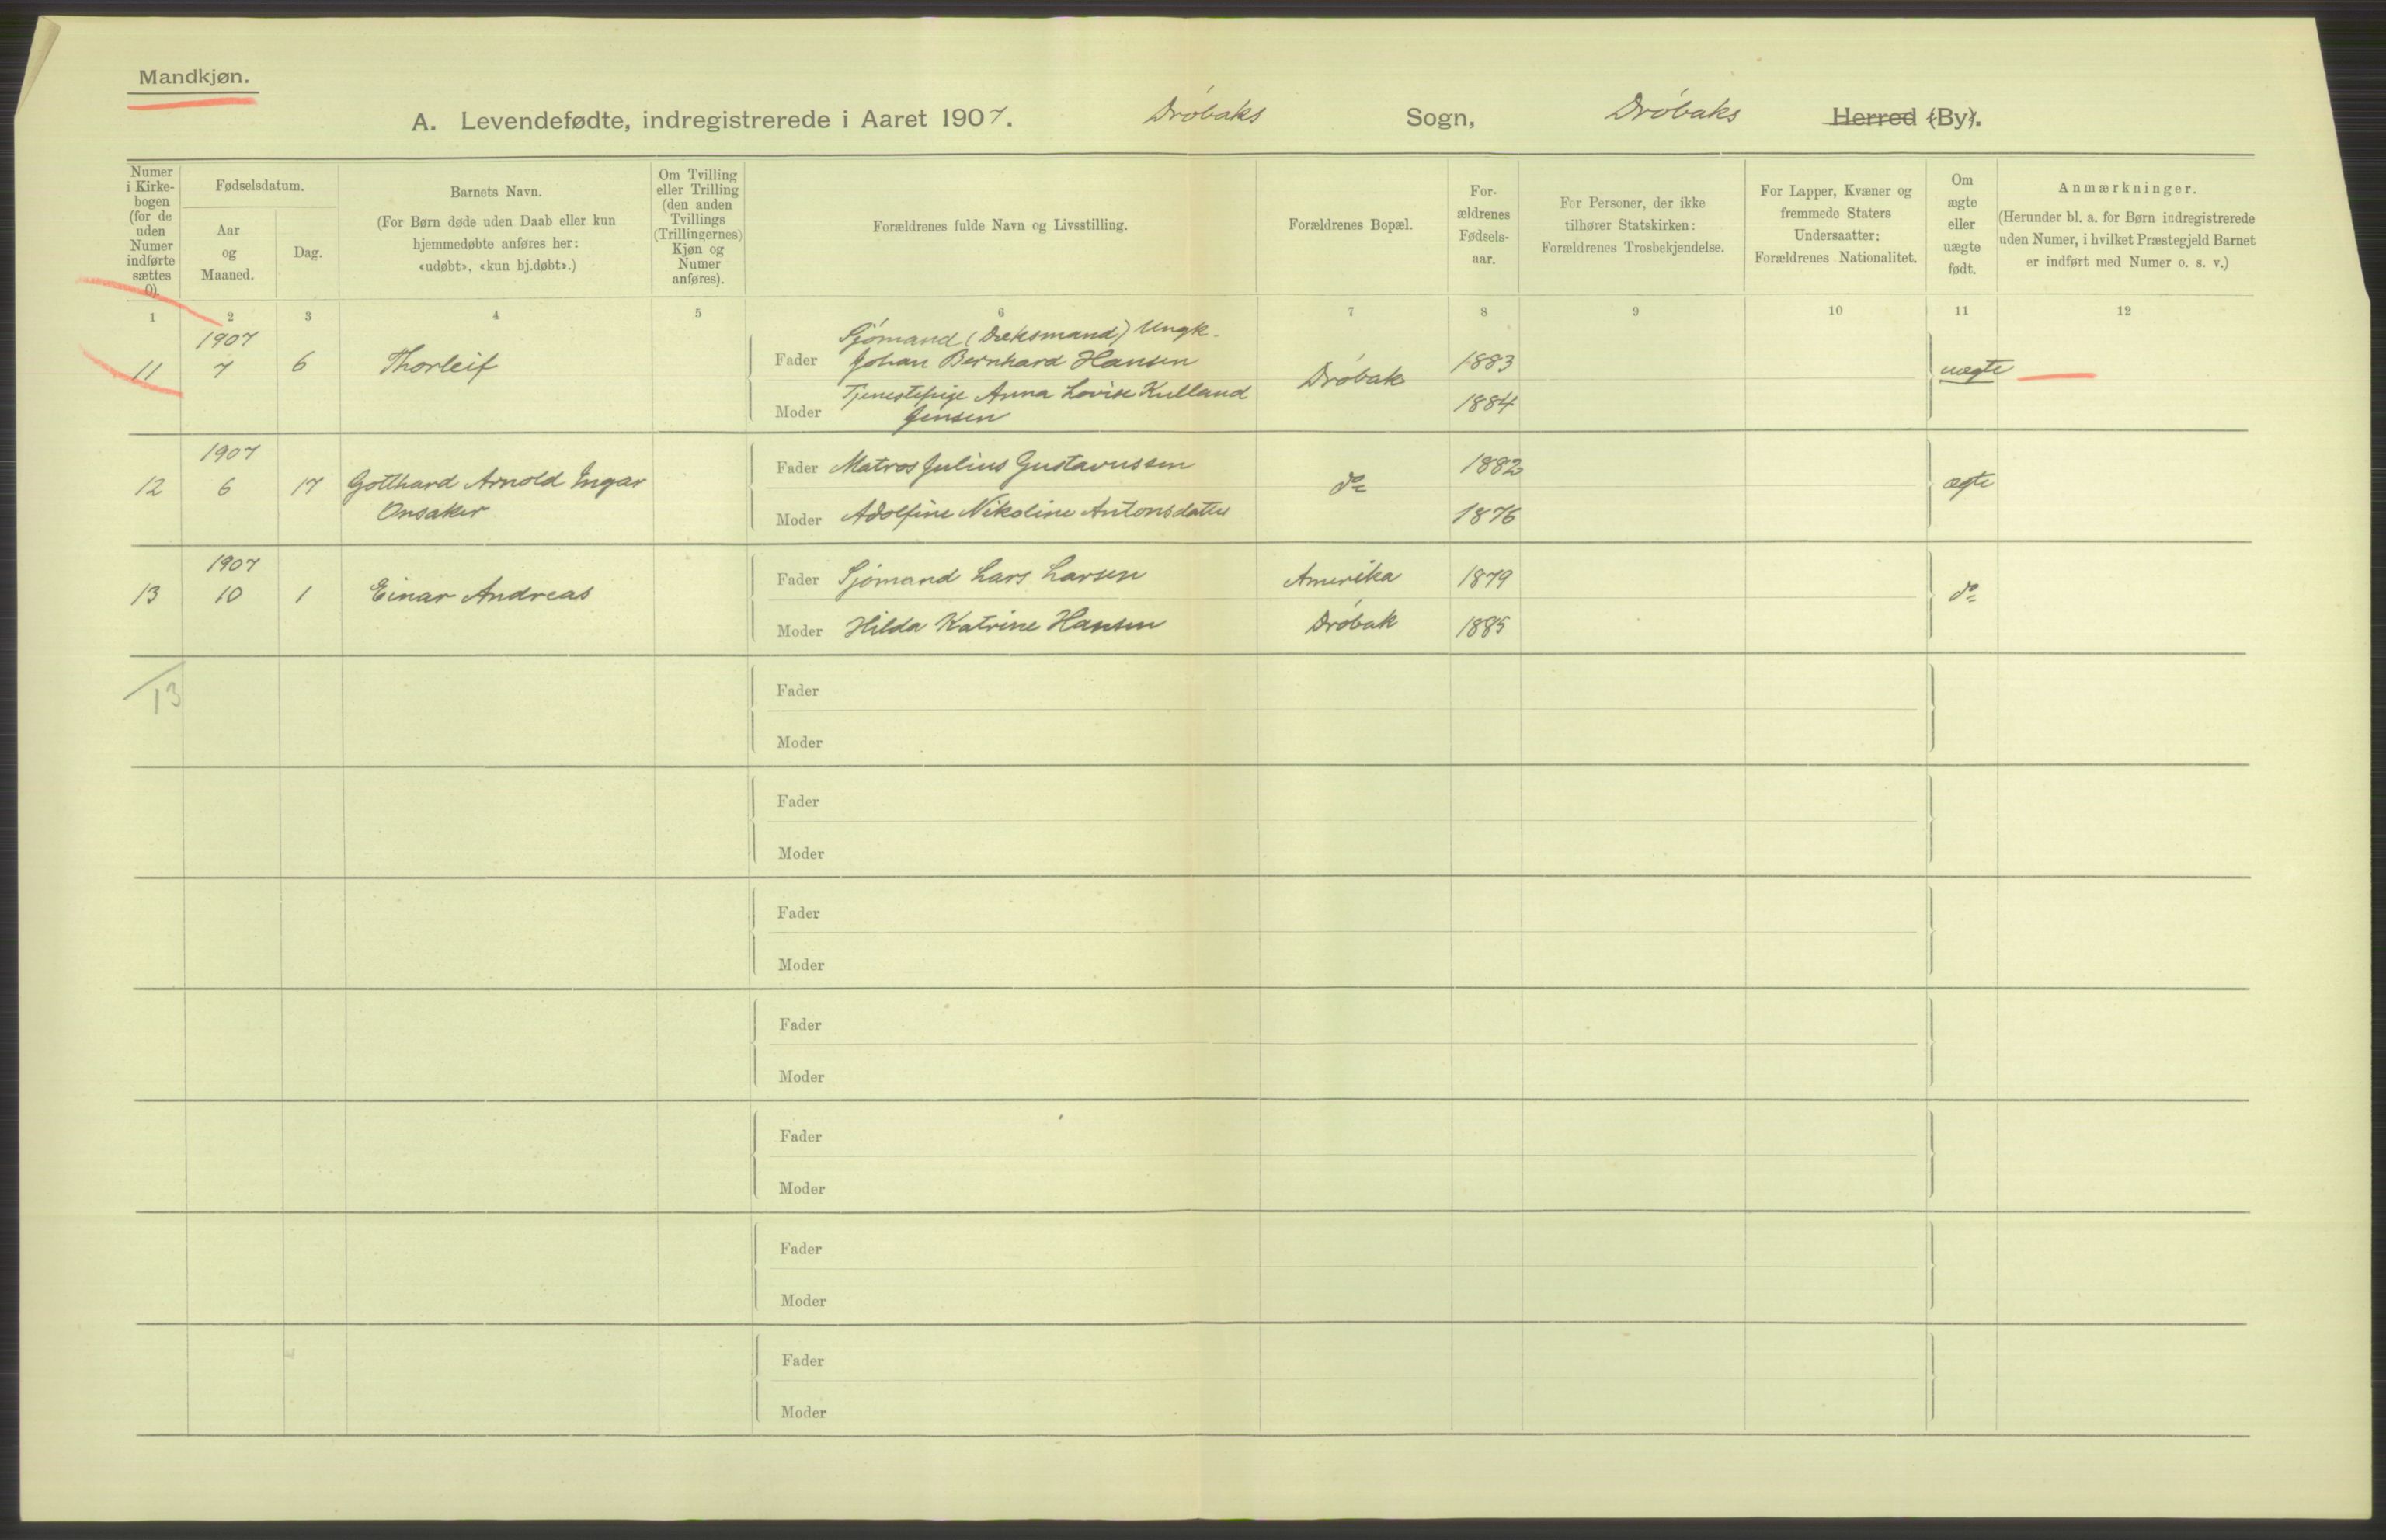 Mandkjøn.
A. Levendefødte, indregistrerede i Aaret 1907. Drøbaks Sogn, Drøbaks Herred (By).
Numer i Kirke- bogen (for de uden Numer indførte sættes 0).
Fødselsdatum.
Aar og Maaned.
Dag.
Barnets Navn.
(For Børn døde uden Daab eller kun hjemmedøbte anføres her: «udøbt», «kun hj.døbt».)
Om Tvilling eller Trilling (den anden Tvillings (Trillingernes) Kjøn og Numer anføres).
Forældrenes fulde Navn og Livsstilling.
Forældrenes Bopæl.
For- ældrenes Fødsels- aar.
For Personer, der ikke tilhører Statskirken: Forældrenes Trosbekjendelse.
For Lapper, Kvæner og fremmede Staters Undersaatter: Forældrenes Nationalitet.
Om ægte eller uægte født.
Anmærkninger.
(Herunder bl. a. for Børn indregistrerede uden Numer, i hvilket Præstegjeld Barnet er indført med Numer o. s. v.)
1 2 3 4 5 6 7 8 9 10 11 12
1907 Sjømand (Dæksmand) Ungk.
11 7 6 Thorleif Fader Johan Bernhard Hansen Drøbak 1883 uægte
Moder Tjenestepige Anna Lovise Kulland 1884
Jensen
1907
12 6 17 Gotthard Arnold Ingar Fader Matros Julius Gustavussen do 1882 ægte
Onsaker Moder Adolfine Nikoline Antonsdatter 1876
1907
13 10 1 Einar Andreas Fader Sjømand Lars Larsen Amerika 1879 do
Moder Hilda Katrine Hansen Drøbak 1885
13
Fader
Moder
Fader
Moder
Fader
Moder
Fader
Moder
Fader
Moder
Fader
Moder
Fader
Moder